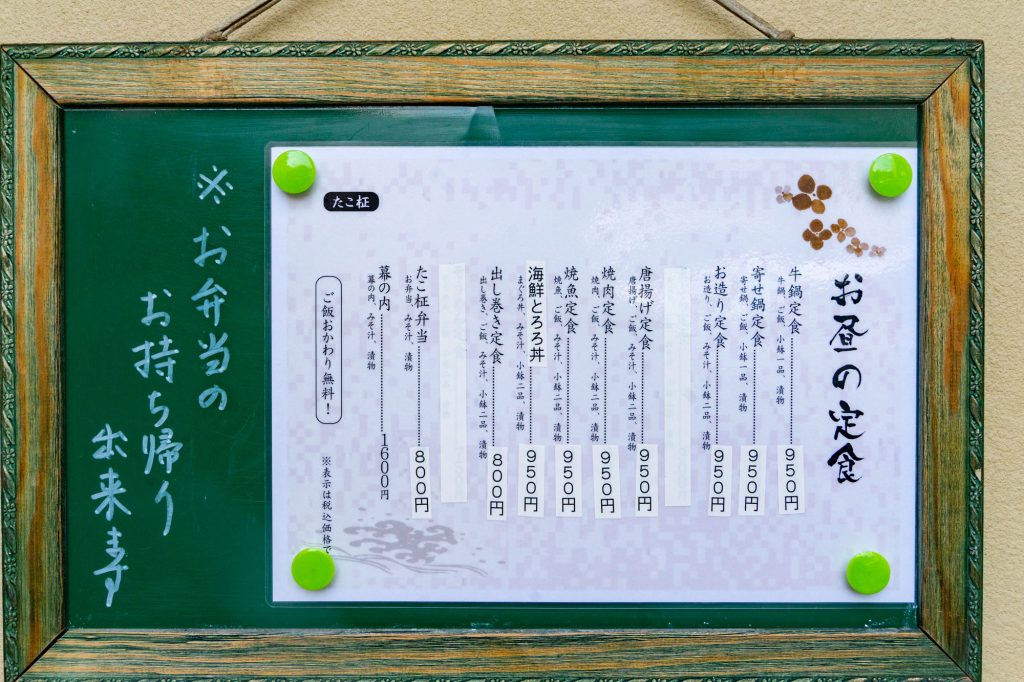 お昼の定食
牛鍋定食 950円
牛鍋、ご飯、小鉢一品、漬物
寄せ鍋定食 950円
寄せ鍋、ご飯、小鉢一品、漬物
お造り定食 950円
お造り、ご飯、みそ汁、小鉢二品、漬物
唐揚げ定食 950円
唐揚げ、ご飯、みそ汁、小鉢二品、漬物
焼肉定食 950円
焼肉、ご飯、みそ汁、小鉢二品、漬物
焼魚定食 950円
焼魚、ご飯、みそ汁、小鉢二品、漬物
海鮮とろろ丼 950円
まぐろ丼、みそ汁、小鉢二品、漬物
出し巻き定食 800円
出し巻き、ご飯、みそ汁、小鉢二品、漬物
たこ柾弁当 800円
お弁当、みそ汁、漬物
幕の内 1600円
幕の内、みそ汁、漬物
たこ柾
ご飯おかわり無料！
※表示は税込価格で
※お弁当の
お持ち帰り
出来ます